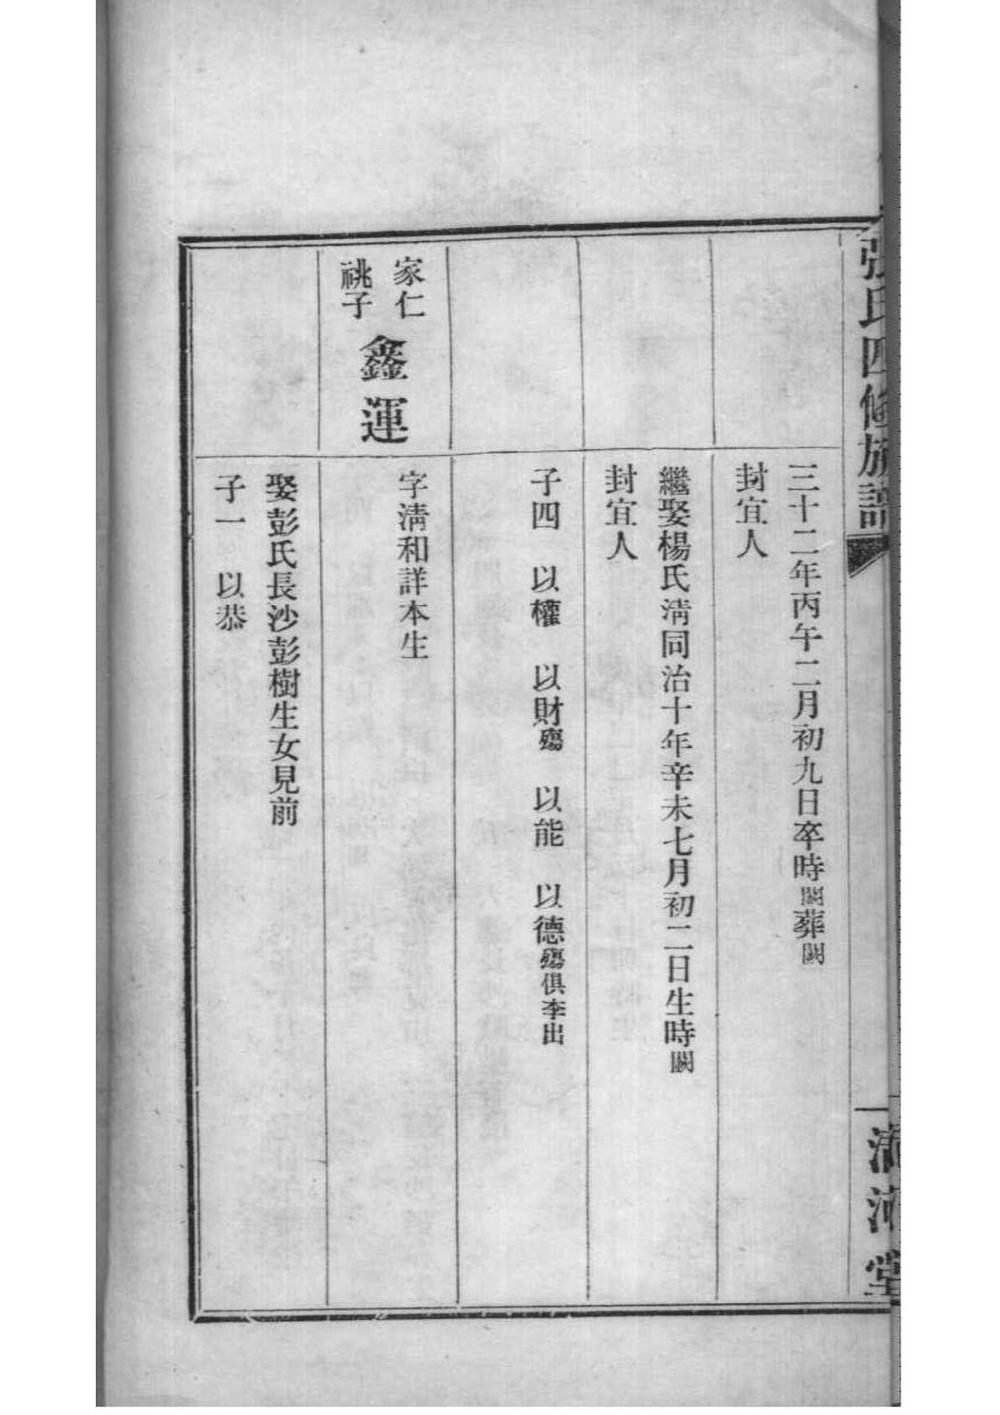 張氏四修族譜
三十二年丙午二月初九日卒時闕葬闕
封宜人
繼娶楊氏淸同治十年辛未七月初二日生時闕
封宜人
子四 以權 以財殤 以能 以德殤俱李出
家仁
祧子
鑫運
字淸和詳本生
娶彭氏長沙彭樹生女見前
子一 以恭